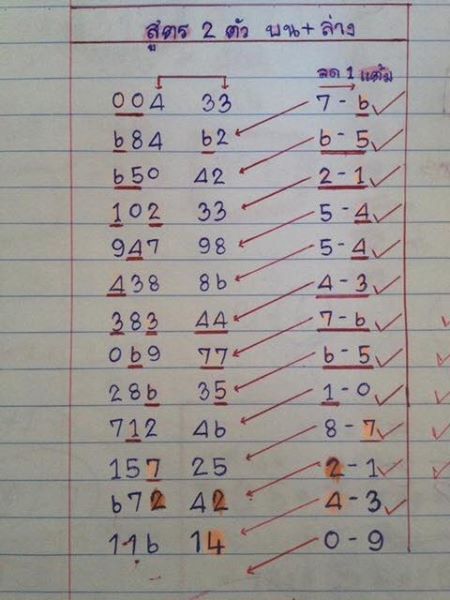 สูตร 2 ตัว บน+ล่าง
ลด 1 แต้ม
004 33 7-6
684 62 6-5
650 42 2-1
102 33 5-4
947 98 5-4
438 86 4-3
383 44 7-6
069 77 6-5
286 35 1-0
712 46 8-7
157 25 2-1
672 42 4-3
116 14 0-9